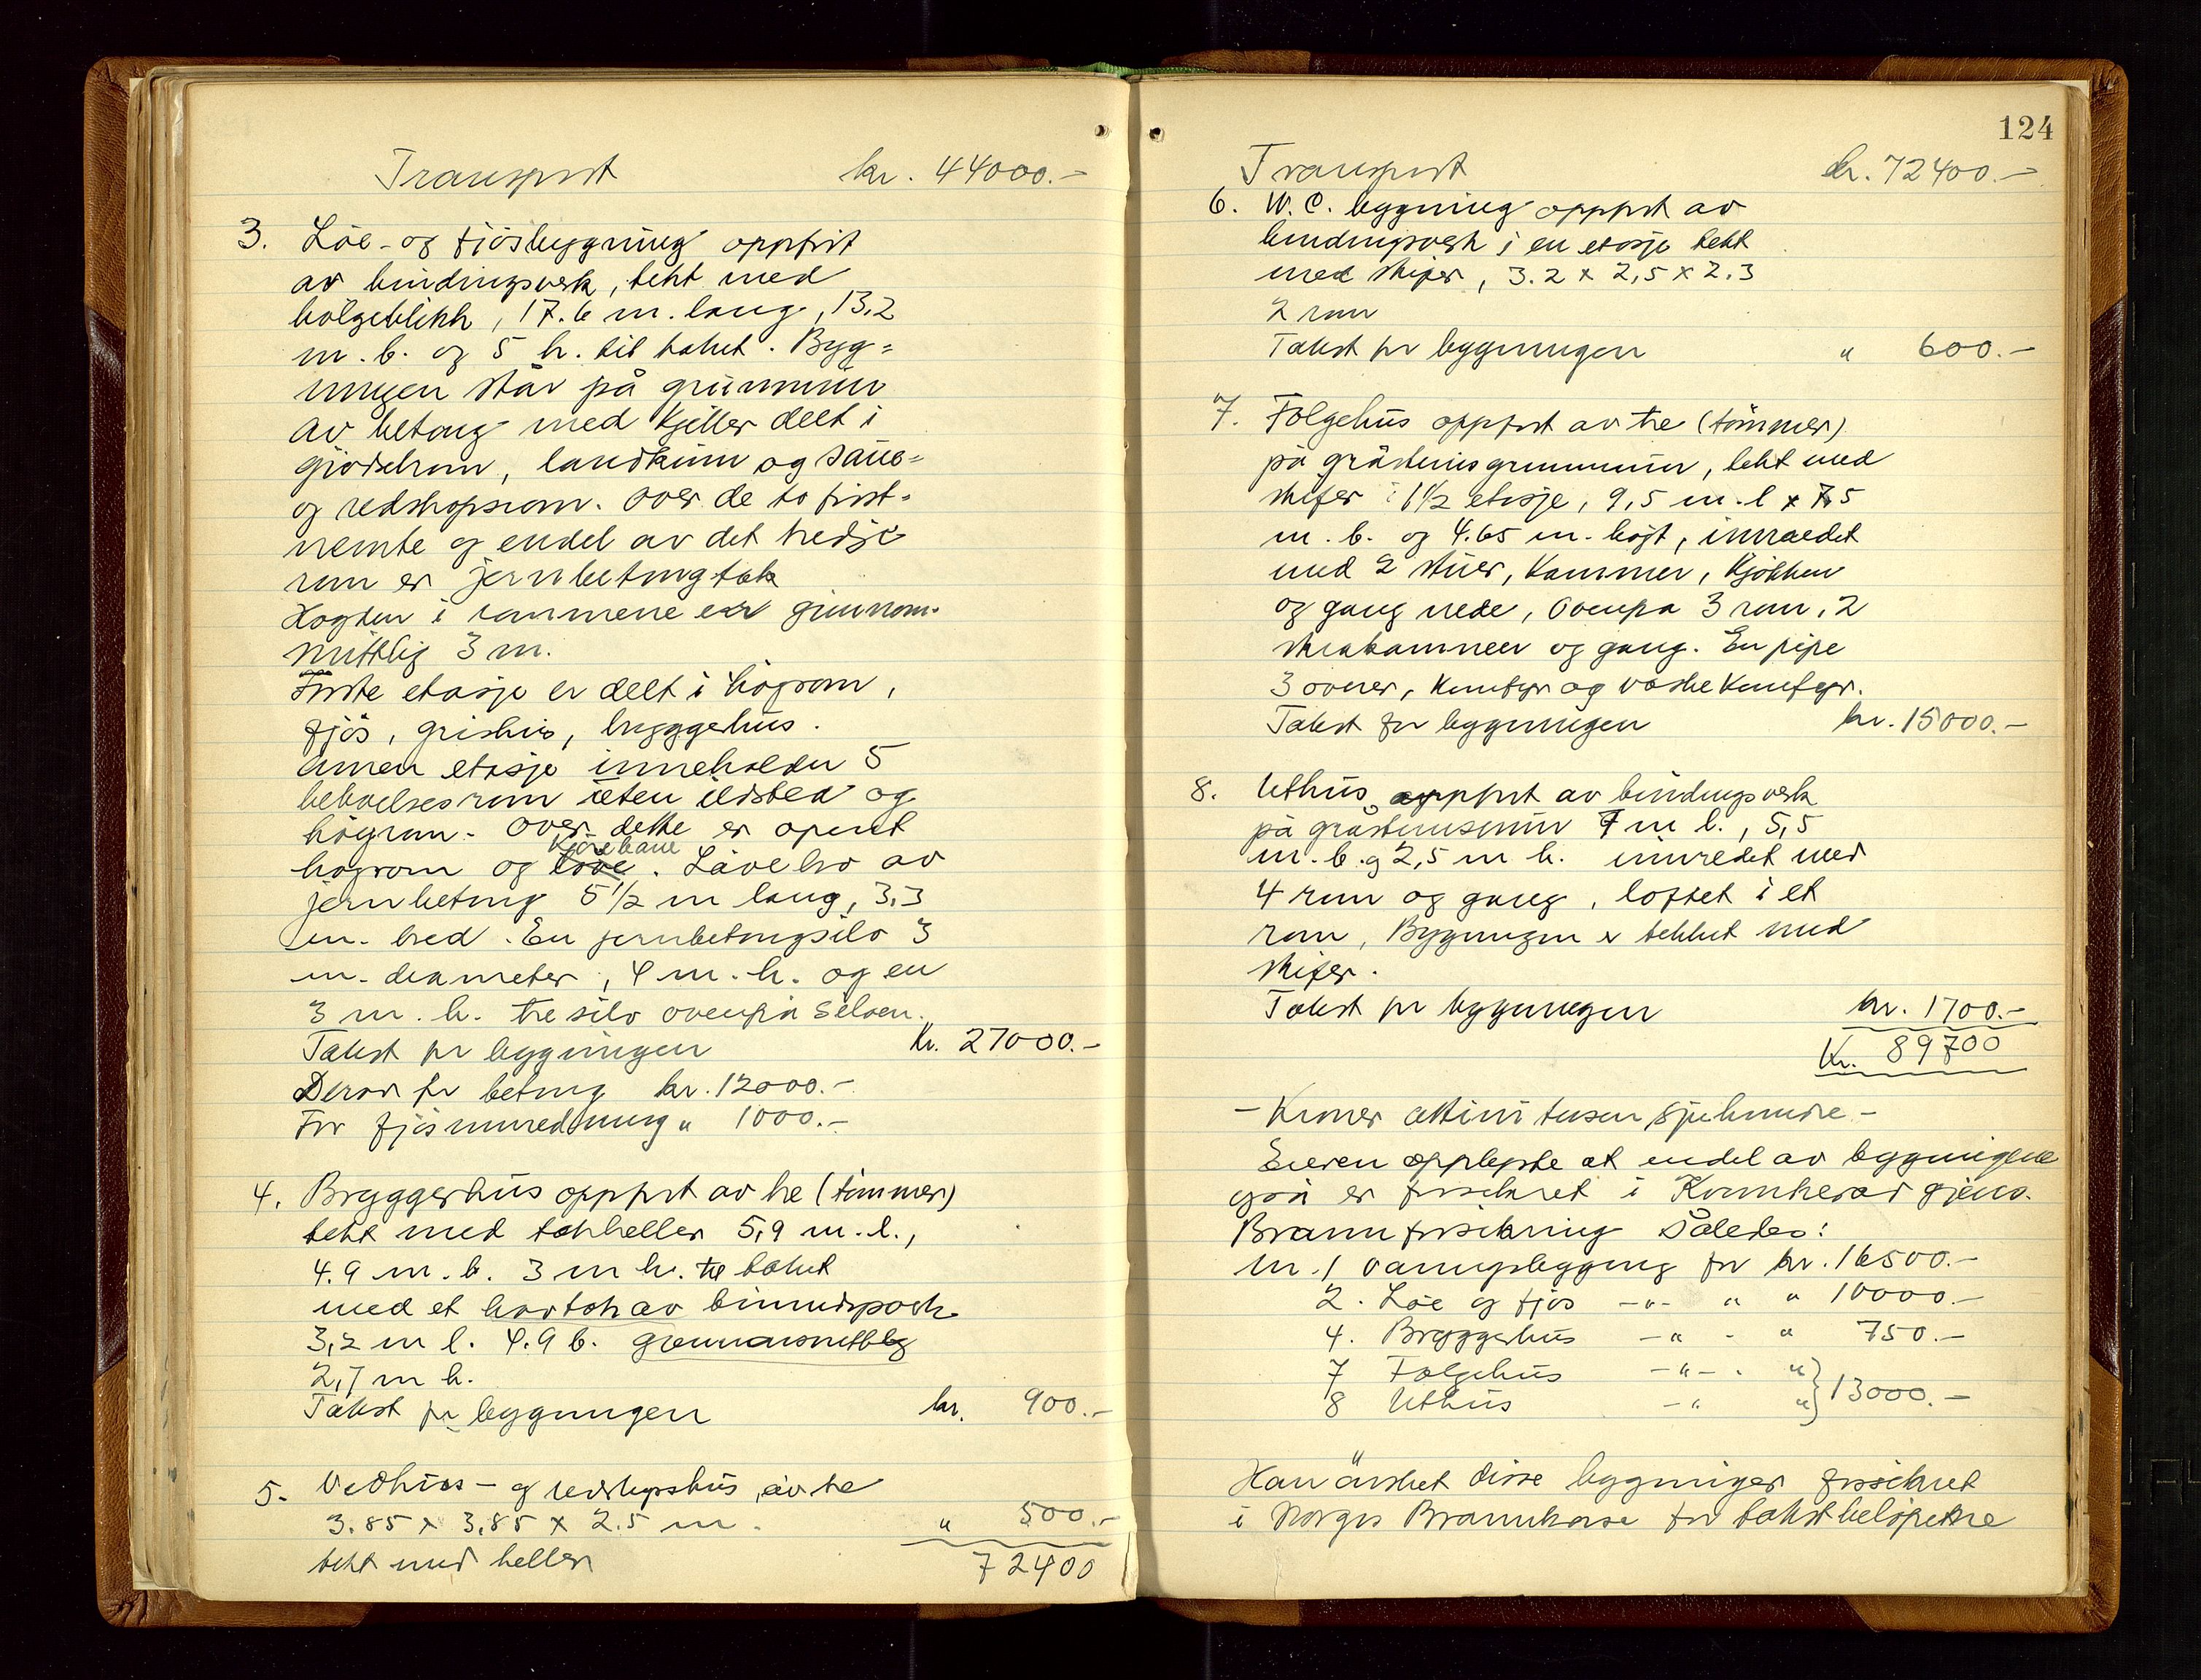 Transport kr. 44000.-
3. Löe- og fjösbygning oppfört
av bindingsverk, tekt med
bölgeblikk, 17.6 m. lang, 13,2
m. b. og 5 h. til taket. Byg=
ningen står på grunnmur
av betong med kjeller delt i
gjödselrom, landkum og saue=
og redskapsrom. Over de to först=
nemte og endel av det tredje
rum er jernbetongtak
Högden i rommene er gjennom-
snittlig 3 m.
Förste etasje er delt i höyrom,
fjös, grishus, bryggerhus.
Annen etasje inneholder 5
bekvelsesrum uten ildsted og
höyrum. Over dette er opent
Kjörebane
höyrom og löve. Låvebro av
jernbetong 5 1/2 m lang, 3,3
m. bred. En jernbetongsilo 3
m. diameter, 4 m. h. og en
3 m. h. tresilo ovenpå siloen.
Takst for bygningen Kr. 27000.-
Derav for betong kr. 12000.-
For fjösinnredning " 1000.-
4. Bryggerhus oppfört av tre (tömmer)
tekt med takheller 5,9 m. l.,
4.9 m. b. 3 m h. til taket
med et
3,2 m l. 4.9 b. gjennomsnittlig
2,7 m h.
Takst for bygningen kr. 900.-
5. Vedhus- og redskapshus av tre
3.85 x 3,85 x 2.5 m. " 500.-
tekt med heller 72400
124
Transport kr. 72400.-
6. W. C. bygning oppfört av
bindingsverk i en etasje tekt
med skifer, 3.2 x 2,5 x 2.3
2 rum
Takst for bygningen " 600.-
7. Fölgehus oppfört av tre (tömmer)
på gråsteinsgrunnmur, tekt med
skifer i 1 1/2 etasje, 9,5 m. l x 7,5
m. b. og 4.65 m. högt, innredet
med 2 stuer, kammer, kjökken
og gang nede, ovenpå 3 rum, 2
skråkammer og gang. En pipe
3 ovner, komfyr og vaskekomfyr.
Takst for bygningen kr. 15000.-
8. Uthus oppfört av bindingsverk
på gråsteinsmur 7 m l., 5,5
m. b. og 2,5 m h. innredet med
4 rum og gang, loftet i et
rum, Bygningen er tekket med
skifer.
Takst for bygningen kr. 1700.-
Kr. 89700
- Kroner åttini tusen sjuhundre -
Eieren opplyste at endel av bygningene
også er forsikret i Kvinnherad gjens.
Brannforsikring således:
Nr. 1 Våningsbygging for kr. 16500.-
2. Löe og fjös -"- " " 10000.-
4. Bryggerhus -" - " 750.-
7 Fölgehus -"-. "
8 Uthus -" "} 13000.-
Han önsket disse bygninger forsikret
i Norges Brannkasse for takstbelöpene